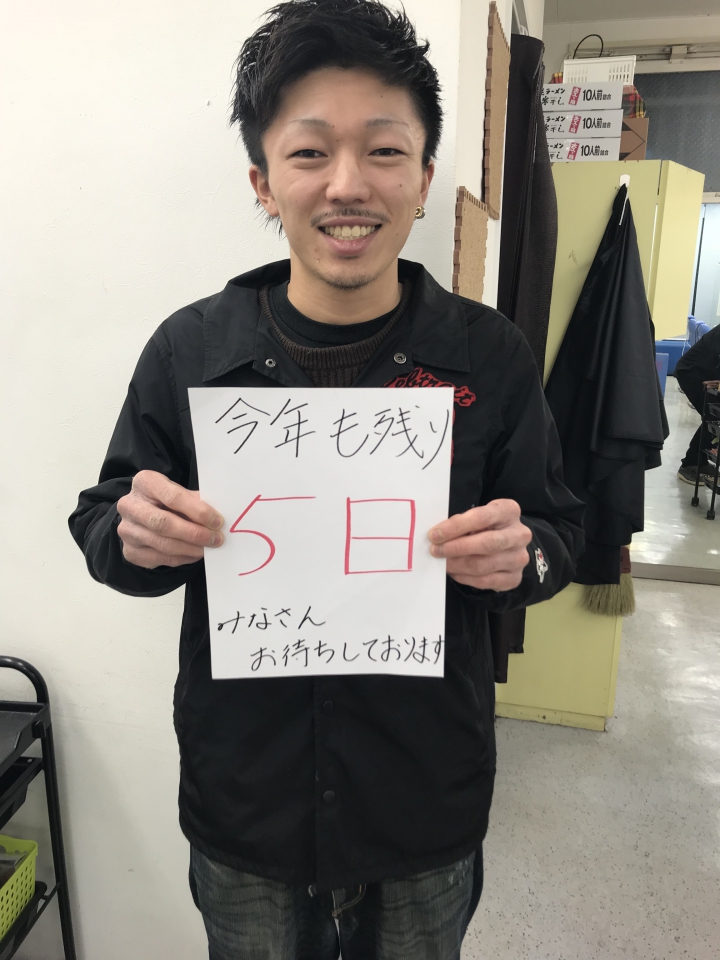 今年も残り
5日
みなさん
お待ちしております
ラーメン
10人前
ラーメン
10人前
10人前